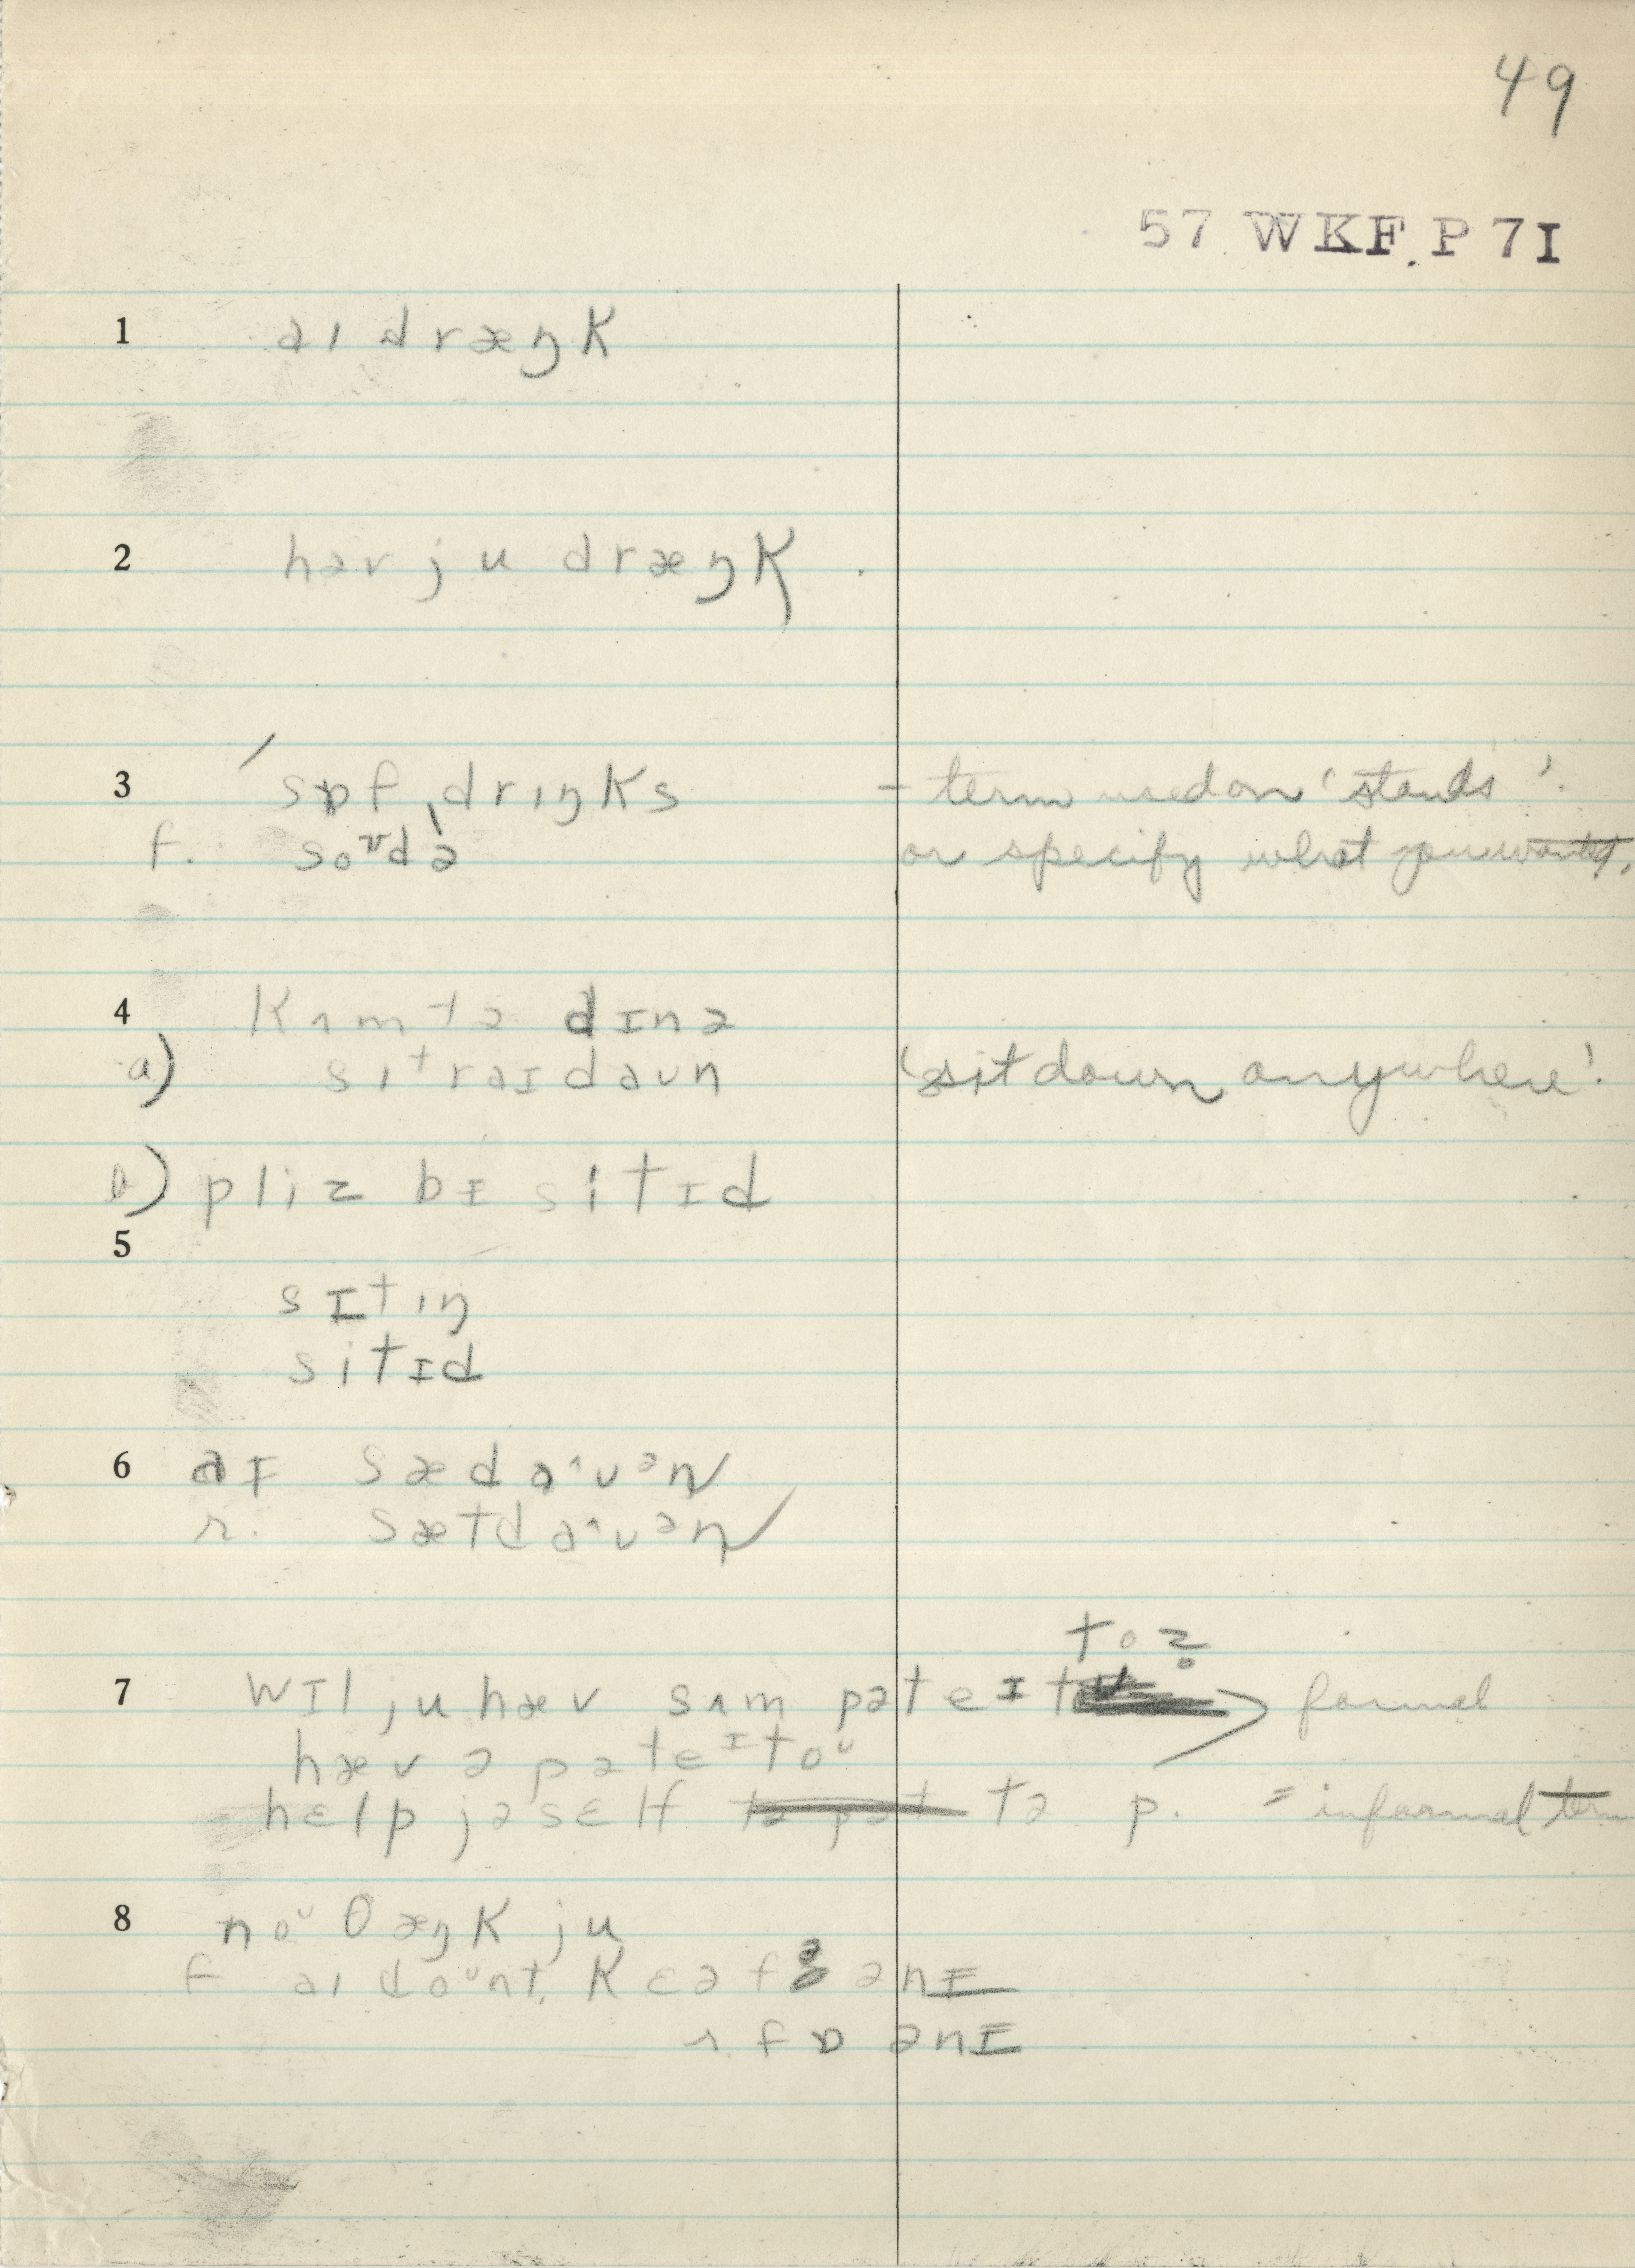 49
57 WKF. P 7I
1 aɪ dræŋk
2 həv ju dræŋk .
3 ˈsɒf ˌdrɪŋks - term used on 'stands'.
f. soʊdə or specify what you wanted.
4 kʌm tə dɪnə
a) sɪt raɪ daʊn 'sit down anywhere'.
b) pliz bɪ sitɪd
5
sɪtɪŋ
sitɪd
6 aɪ sæ daˑʊən
r. sæt daˑʊən
toz
7 wɪl ju hæv sʌm pəteɪt formal
hæv ə pəteɪtoʊ
help jəself tə p. = informal term
8 noʊ θæŋk ju
f aɪ doʊnt kɛə fɜ ənɪ
r. fɒ ənɪ